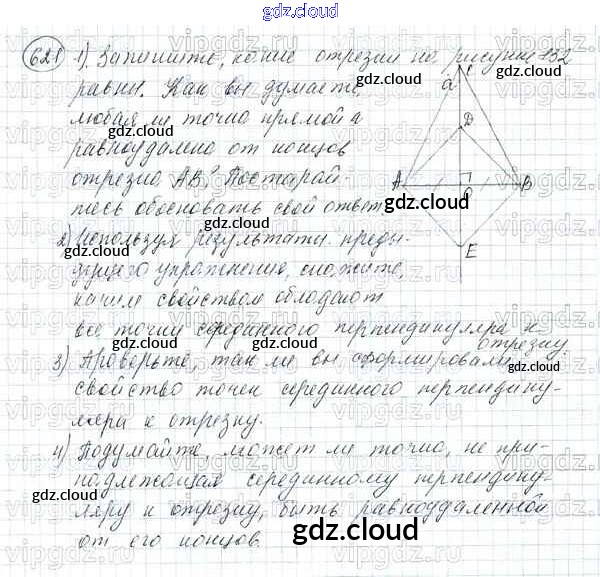 gdz.cloud
621 1). Запишите, какие отрезки на рисунке 132
равны. Как вы думаете,
любая ли точка прямой a
равноудалена от концов
отрезка AB? Постарай-
тесь обосновать свой ответ
2) Используя результаты преды-
дущего упражнения, скажите,
каким свойством обладают
все точки серединного перпендикуляра к
отрезку.
3) Проверьте, так ли вы сформировали
свойство точек серединного перпендику-
ляра к отрезку.
4) Подумайте, может ли точка, не при-
надлежащая серединному перпендику-
ляру к отрезку, быть равноудаленной
от его концов.
a
C
D
A
O
B
E
gdz.cloud
gdz.cloud
gdz.cloud
gdz.cloud
gdz.cloud
gdz.cloud
gdz.cloud
gdz.cloud
gdz.cloud
gdz.cloud
gdz.cloud
gdz.cloud
gdz.cloud